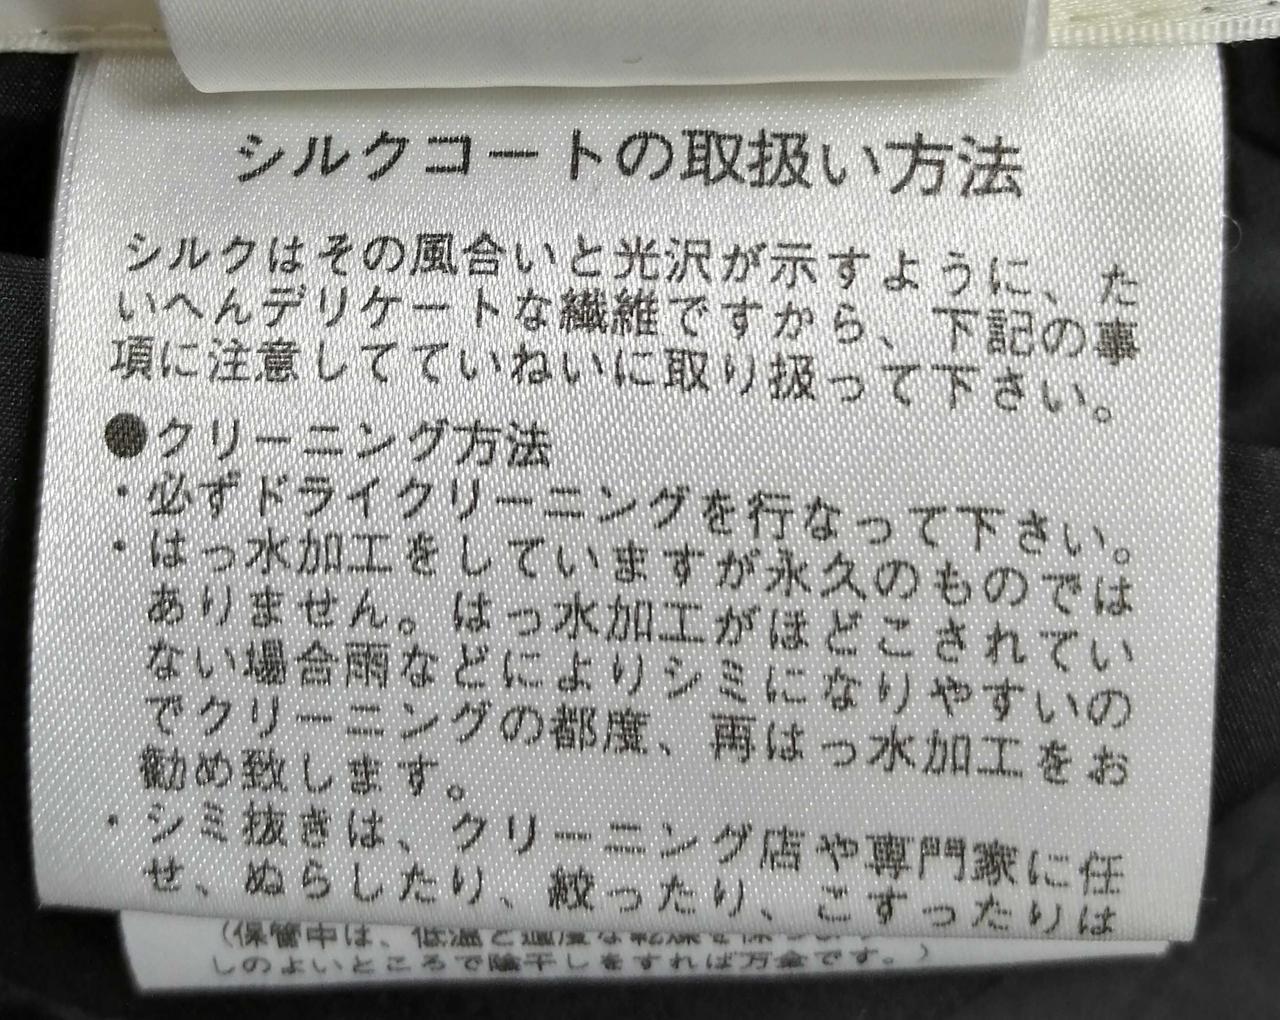 シルクコートの取扱い方法
シルクはその風合いと光沢が示すように、た
いへんデリケートな繊維ですから、下記の事
項に注意してていねいに取り扱って下さい。
●クリーニング方法
・必ずドライクリーニングを行なって下さい。
・はっ水加工をしていますが永久のものでは
ありません。はっ水加工がほどこされてい
ない場合雨などによりシミになりやすいの
でクリーニングの都度、再はっ水加工をお
勧め致します。
・シミ抜きは、クリーニング店や専門家に任
せ、ぬらしたり、絞ったり、こすったりは
(保管中は、低温と適度な乾燥を保
しのよいところで陰干しをすれば万全です。)